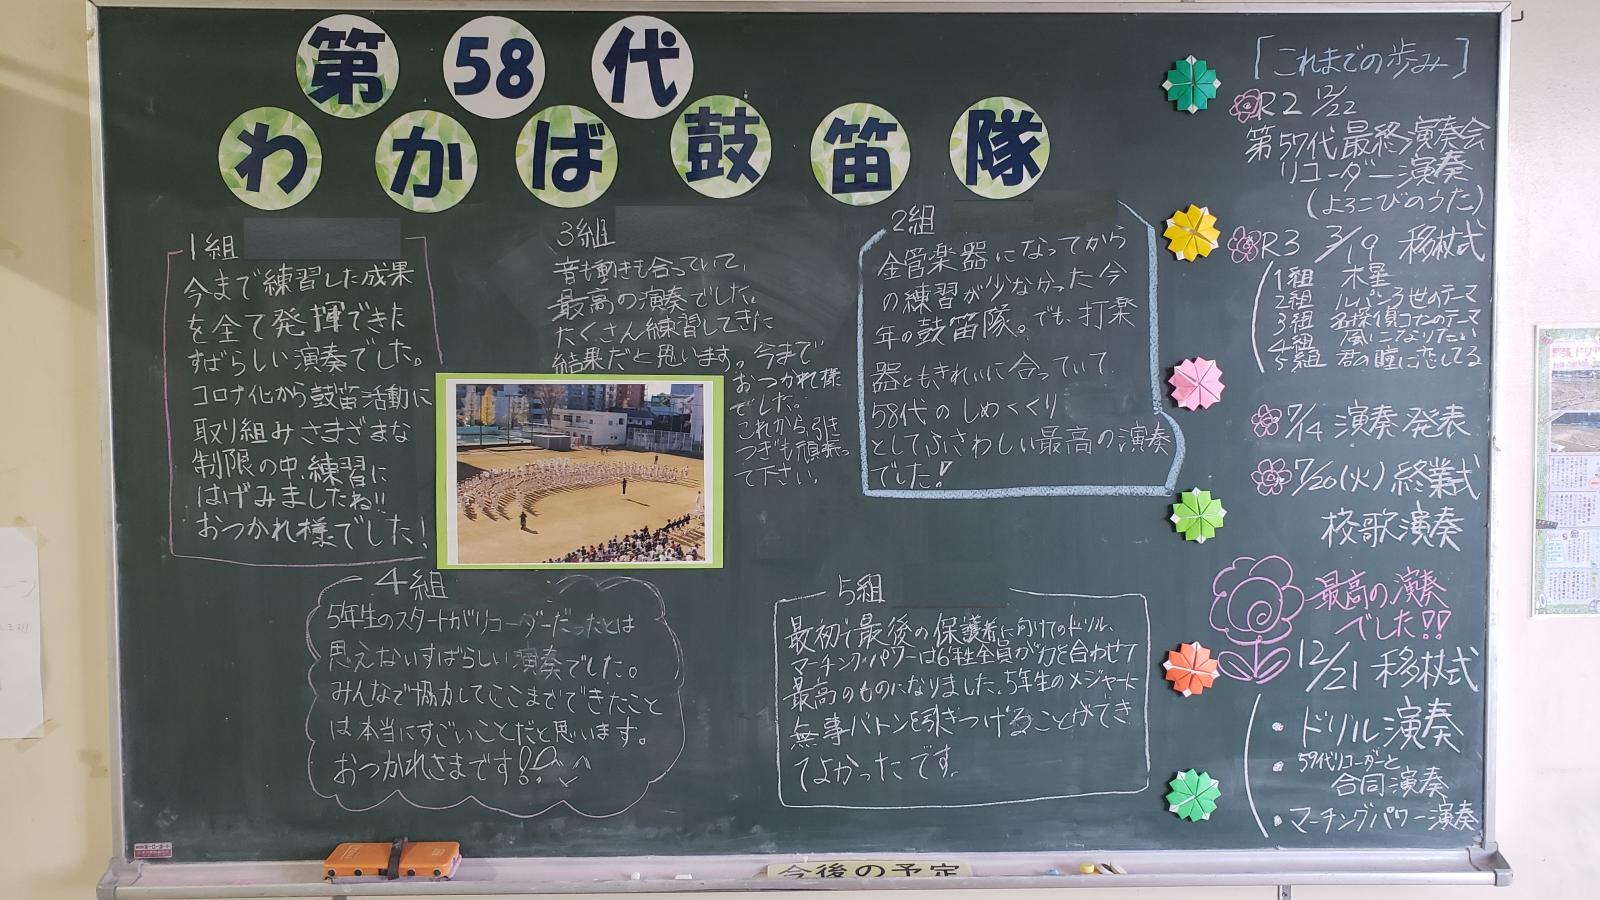 第58代
わかば鼓笛隊
1組
今まで練習した成果
を全て発揮できた
すばらしい演奏でした。
コロナ化から鼓笛活動に
取り組みさまざまな
制限の中、練習に
はげみましたね!!
おつかれ様でした!
3組
音も動きも合っていて、
最高の演奏でした。
たくさん練習してきた
結果だと思います。今まで
おつかれ様
でした。
これから引き
つぎも頑張っ
て下さい。
2組
金管楽器になってから
の練習が少なかった今
年の鼓笛隊。でも、打楽
器ともきれいに合っていて
58代のしめくくり
としてふさわしい最高の演奏
でした!
4組
5年生のスタートがリコーダーだったとは
思えないすばらしい演奏でした。
みんなで協力してここまでできたこと
は本当にすごいことだと思います。
おつかれさまです!
5組
最初で最後の保護者に向けてのドリル、
マーチングパワーは6年生全員が力を合わせて
最高のものになりました。5年生のメジャーに
無事バトンを引きつげることができ
てよかったです。
[これまでの歩み]
R2 12/22
第57代最終演奏会
リコーダー演奏
(よろこびのうた)
R3 3/19 移杖式
1組 木星
2組 ルパン3世のテーマ
3組 名探偵コナンのテーマ
4組 風になりたい
5組 君の瞳に恋してる
7/14 演奏発表
7/20(火)終業式
校歌演奏
最高の演奏
でした!!
12/21 移杖式
・ドリル演奏
・59代リコーダーと
合同演奏
・マーチングパワー演奏
今後の予定